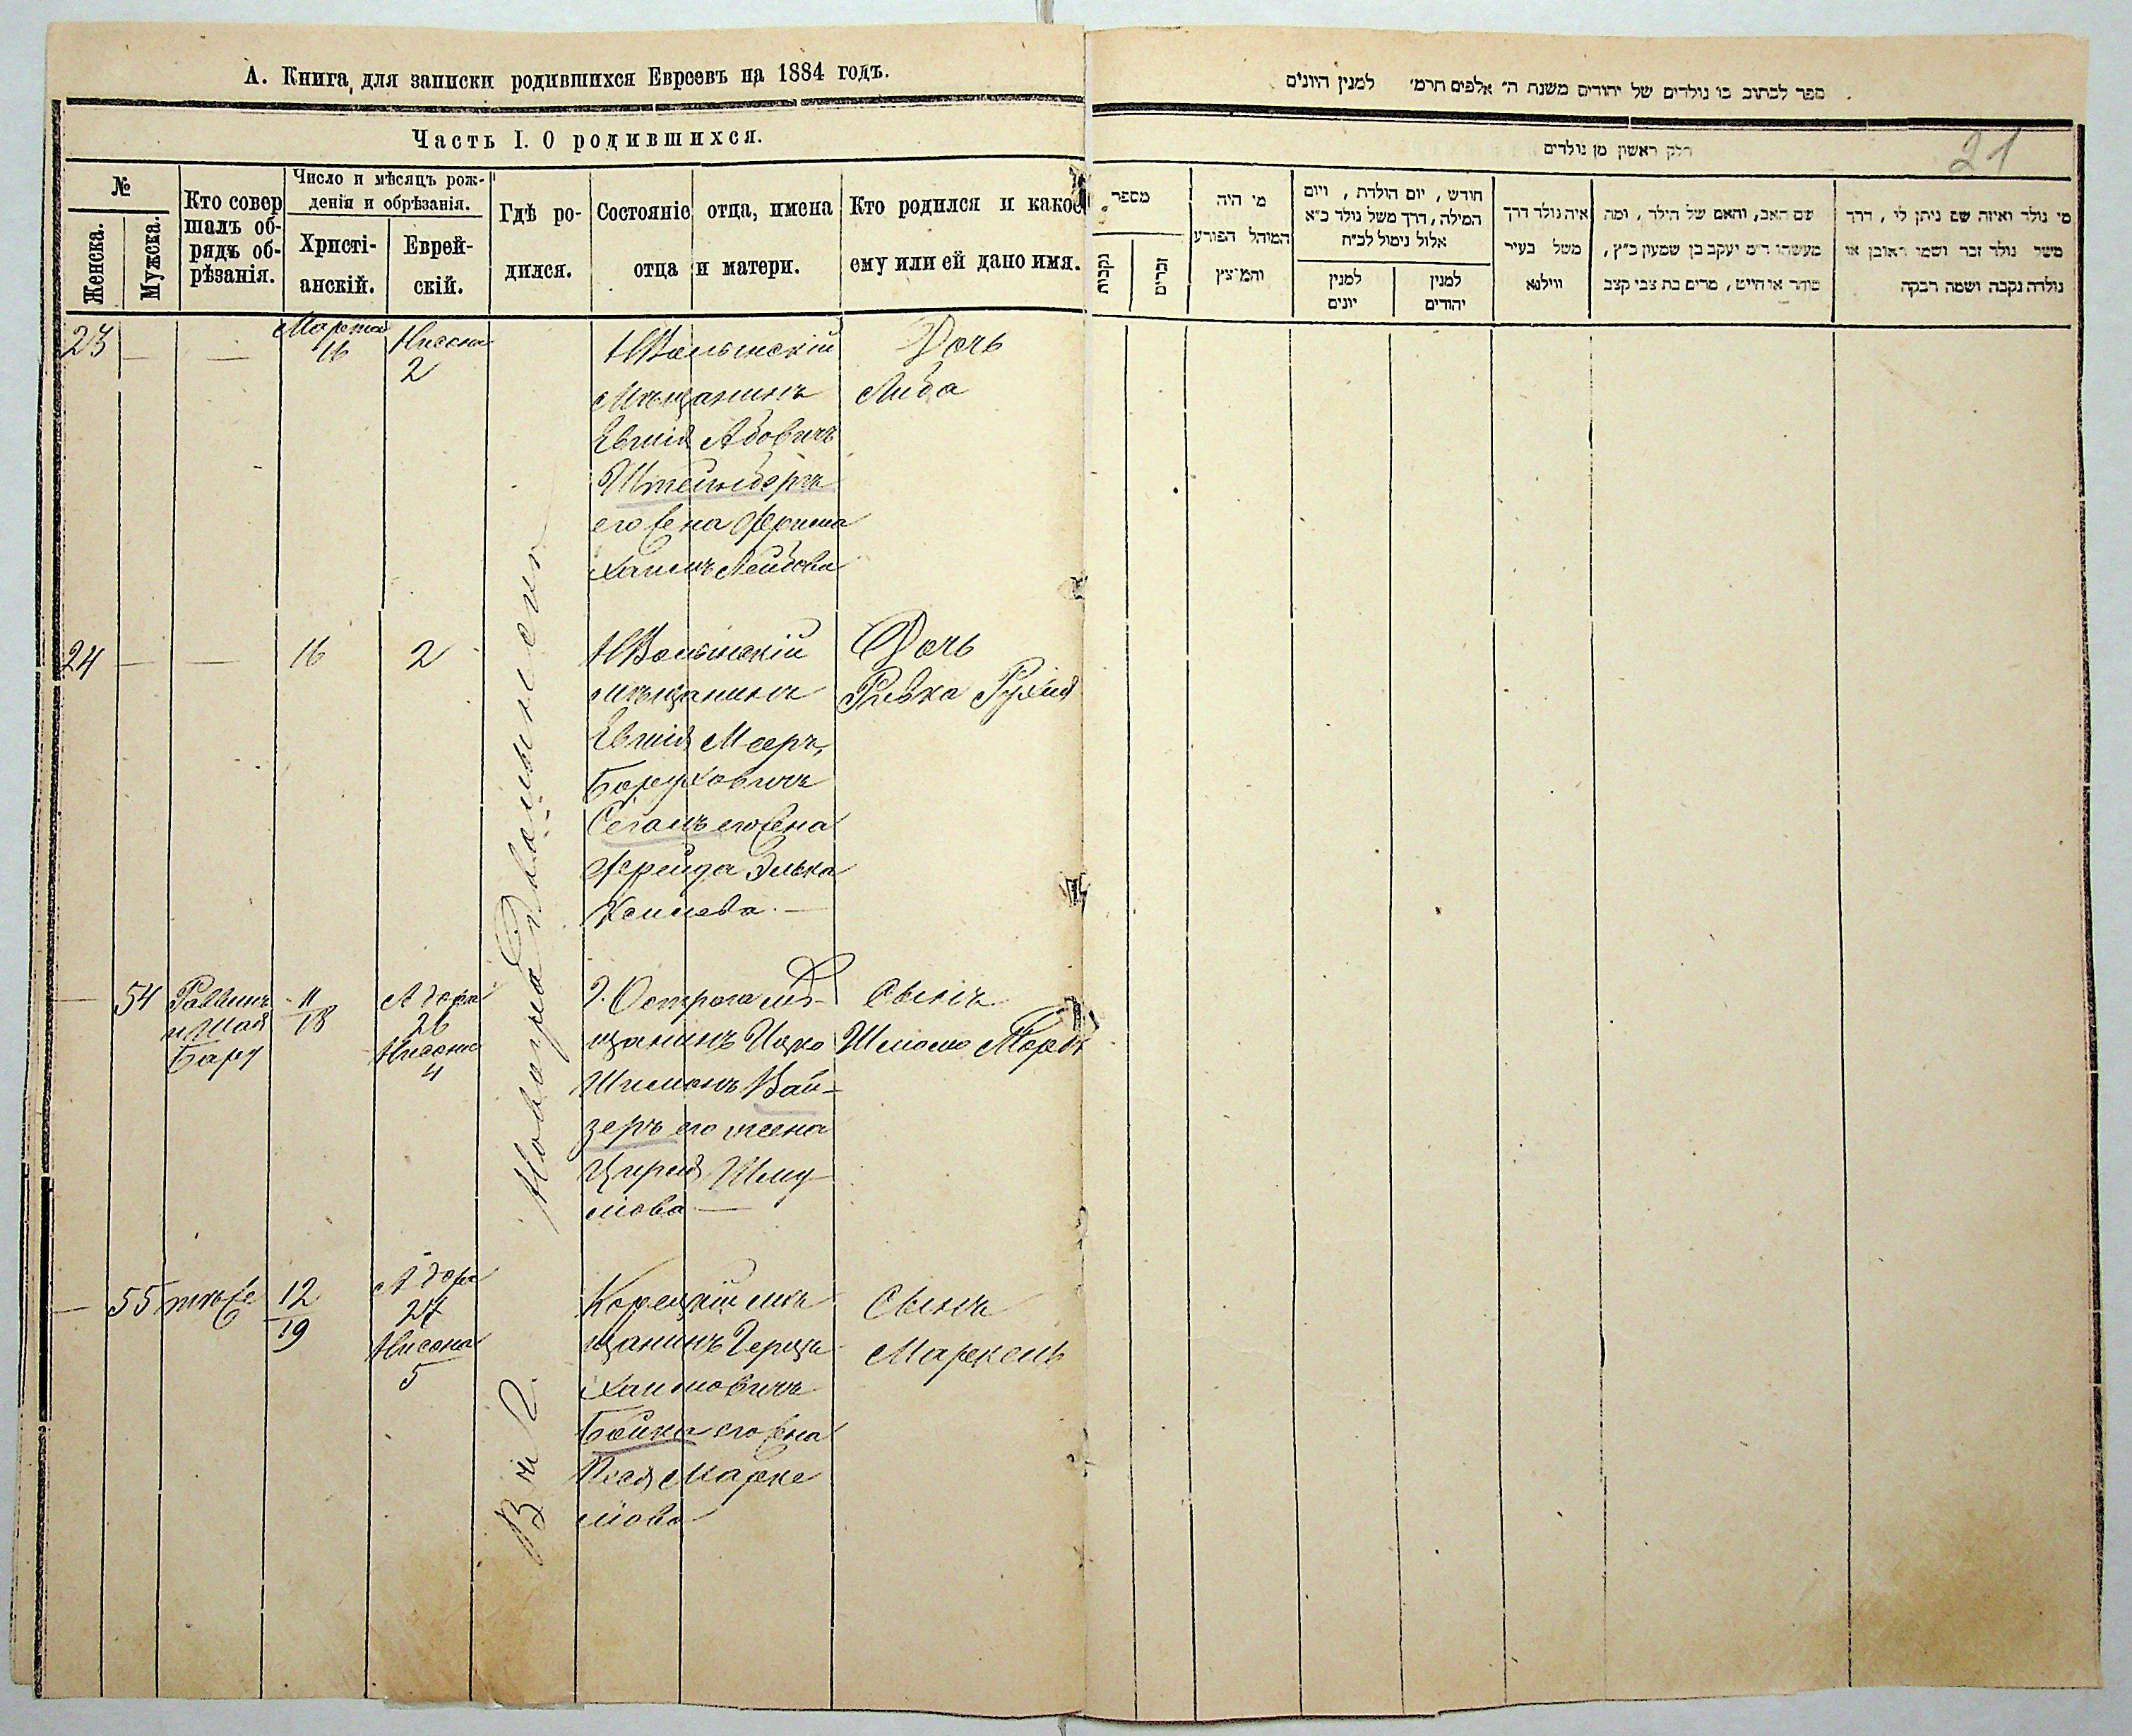 А. Книга для записки родившихся Евреевъ на 1884 годъ.
Часть I. О родившихся.
№
Женска.
Мужска.
Кто совершалъ обрядъ обрѣзанія.
Число и мѣсяцъ рожденія и обрѣзанія.
Христіанскій.
Еврейскій.
Гдѣ родился.
Состояніе отца, имена отца и матери.
Кто родился и какое ему или ей дано имя.
23 — — Марта 16 Нисона 2
НВолынскій
Мѣщанинъ
Евшія Абовичъ
Штейнберъ
его жена Фрима
Хаимъ Лейбова
Дочь
Либа
24 — — 16 2
НВолынскій
мѣщанинъ
Евшія Мееръ
Боруховичъ
Сеганъ его жена
Фрейда Элька
Дочь
Ривка Рухля
— 54 Раввинъ
и Шая
Бару
11
18
Адора
26
Нисона
4
г. Острога мѣ-
щанинъ Ицко
Шимонъ Вай-
зеръ его жена
Цирля Шму
лова —
Сынъ
Шлиомо Мордк
— 55 тѣже
12
19
Адора
27
Нисона
5
Корецкій мѣ
щанинъ Герцъ
Хаимовичъ
Бойко его жена
Песя Марке
лова
Сынъ
Маркель
В м. Новоградволынскъ
ספר לכתוב בו נולדים של יהודים משנת ה׳ אלפים תרמ׳ למנין היונים
חלק ראשון מן נולדים
21
מספר
נקבות
זכרים
מי היה
המוהל הפורע
והמוצץ
חודש, יום הולדת, ויום
המילה, דרך משל נולד כ״א
אלול נימול לכ״ח
למנין
יונים
למנין
יהודים
איה נולד דרך
משל בעיר
ווילנא
שם האב, והאם של הילד, ומה
מעשהו ד״מ יעקב בן שמעון כ״ץ,
סוחר או חייט, מרים בת צבי קצב
מי נולד ואיזה שם ניתן לו, דרך
משל נולד זכר ושמו ראובן או
נולדה נקבה ושמה רבקה